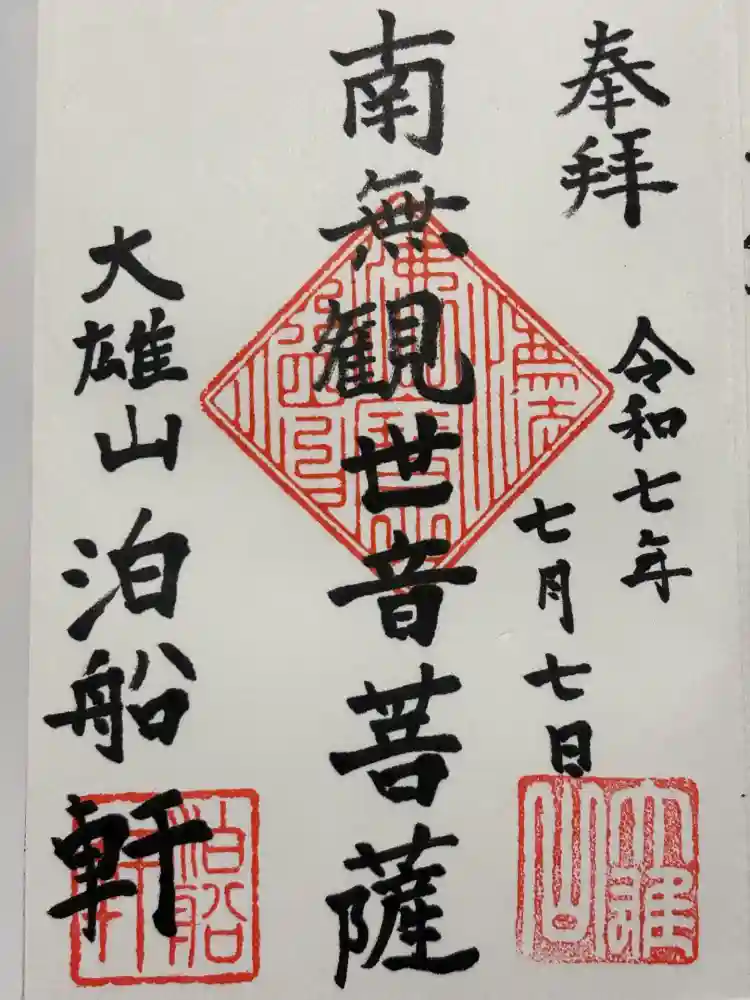 奉拝
令和七年
七月七日
南無観世音菩薩
大雄山 泊船軒
大雄山
泊船軒